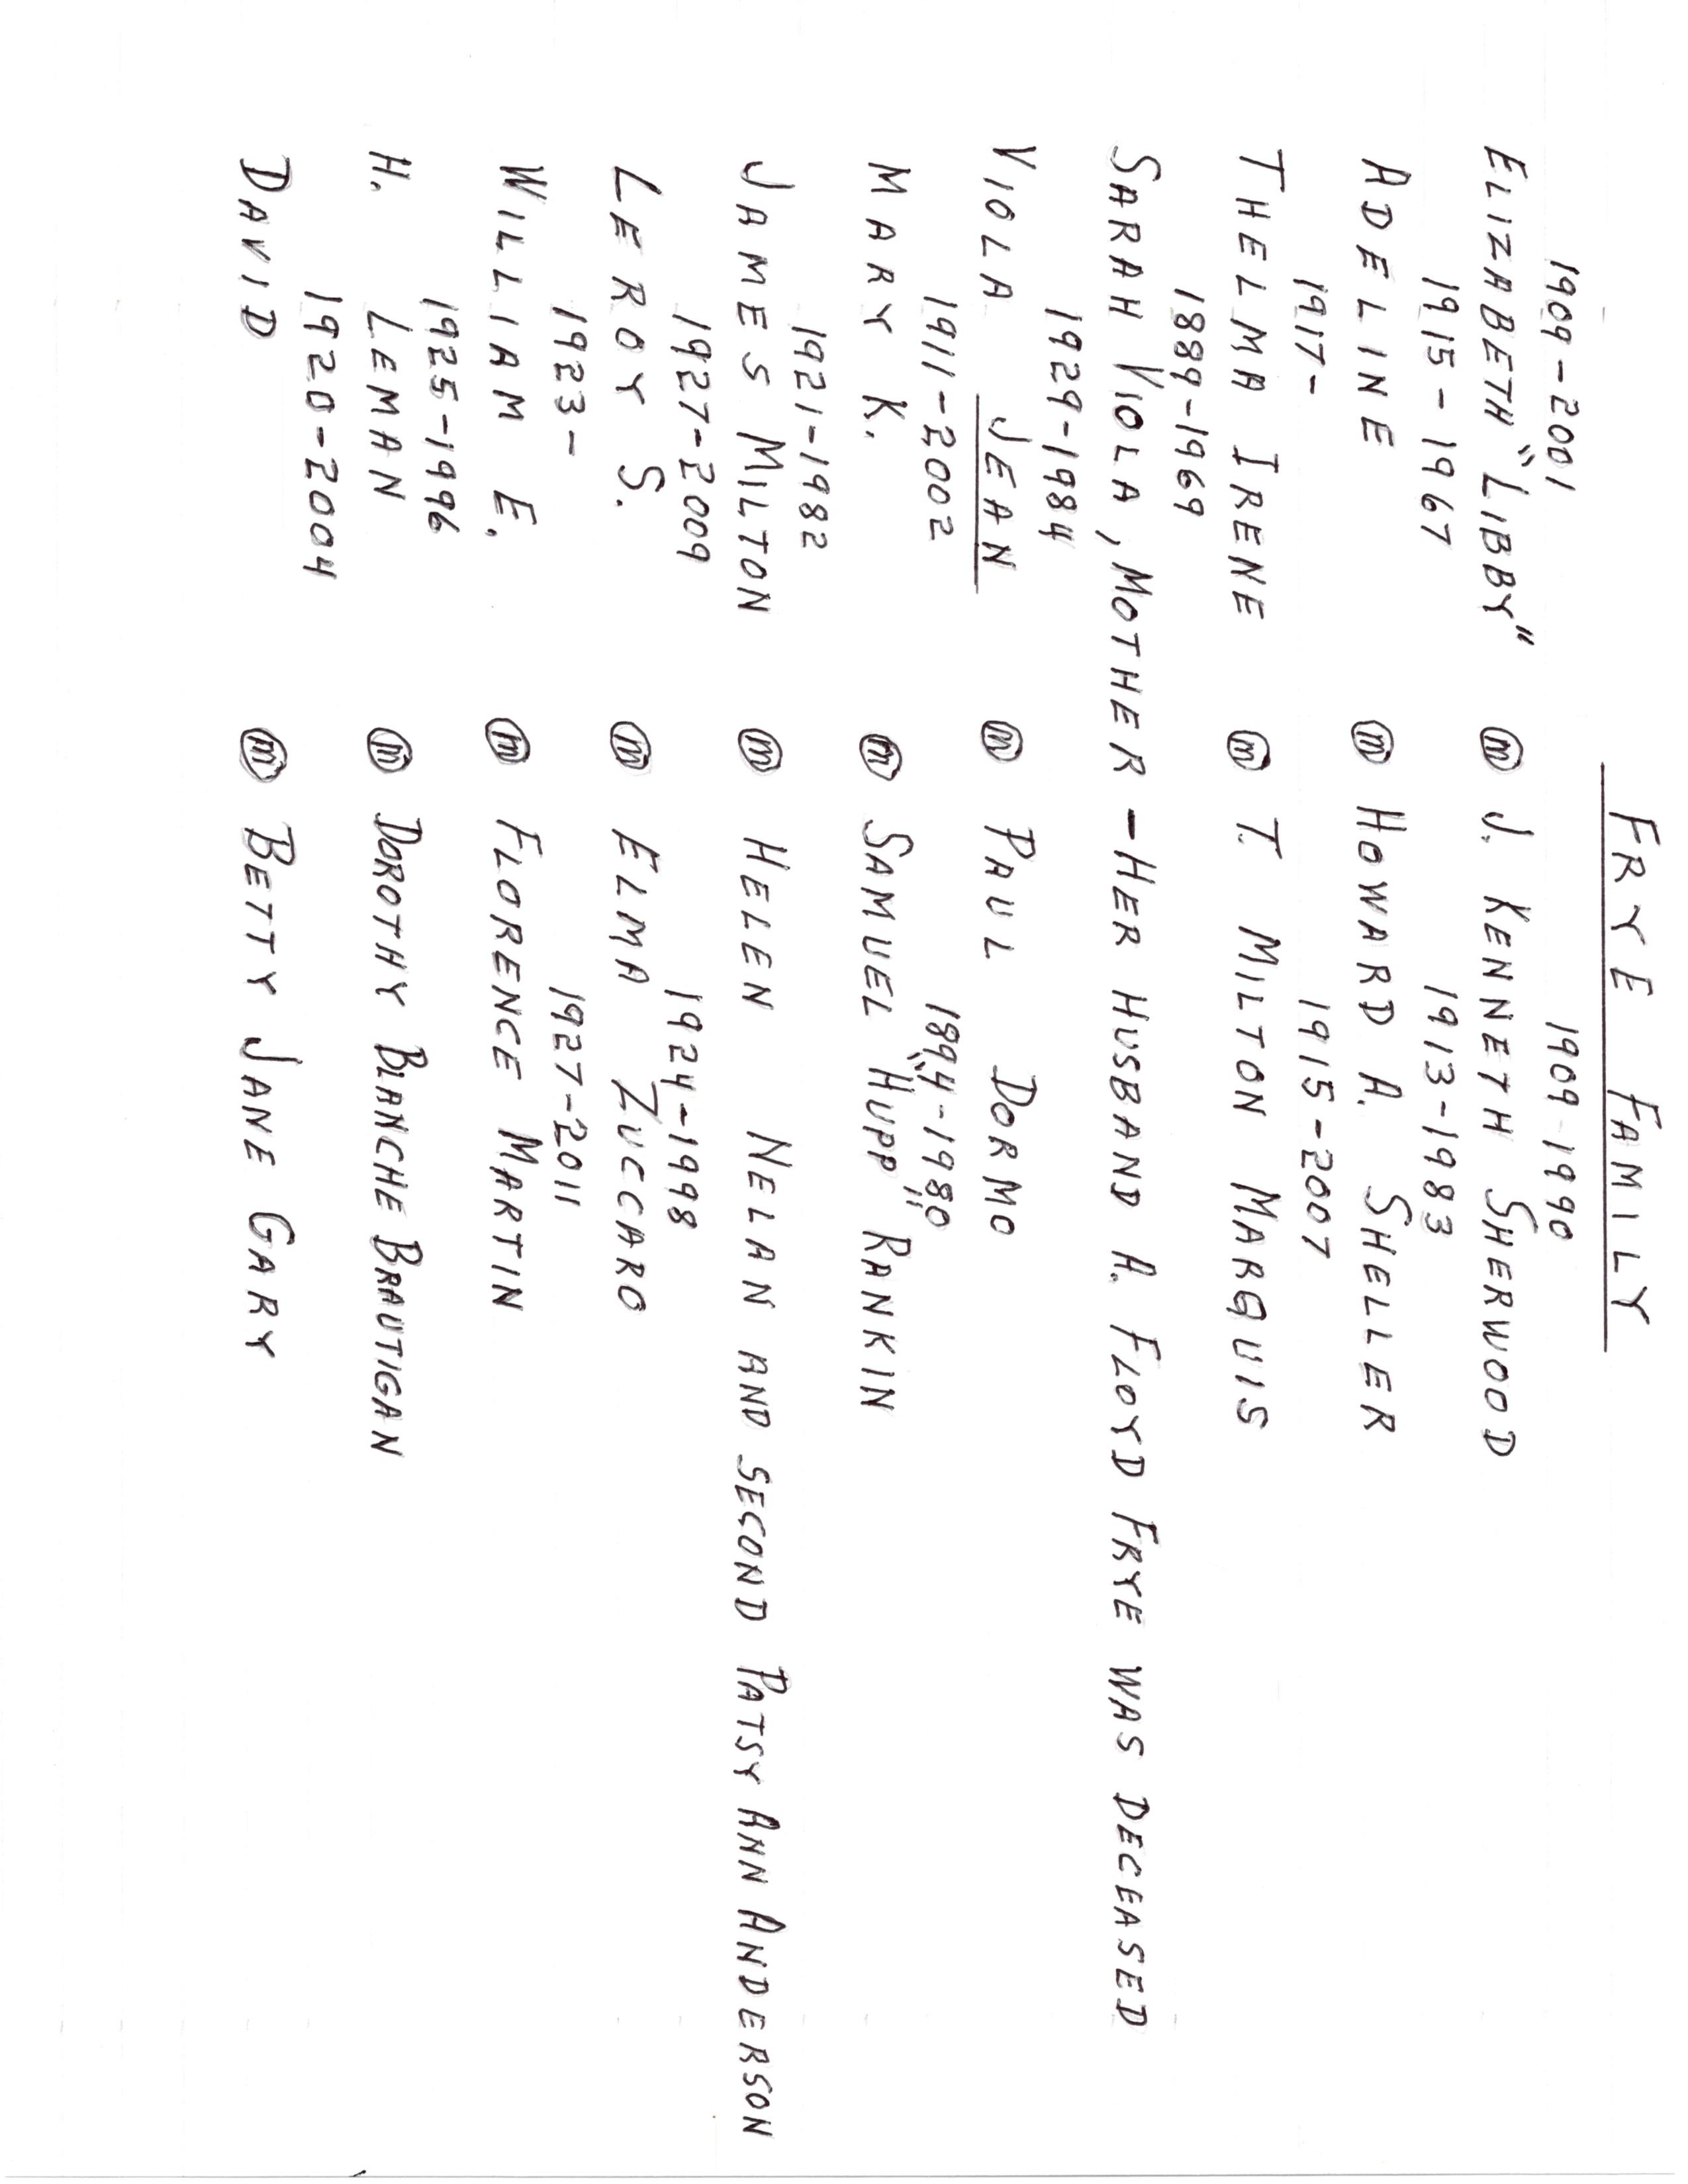 FRYE FAMILY
1909-2001 1909-1990
ELIZABETH "LIBBY" ⓜ J. KENNETH SHERWOOD
1915-1967 1913-1983
ADELINE ⓜ HOWARD A. SHELLER
1917- 1915-2007
THELMA IRENE ⓜ T. MILTON MARQUIS
1889-1969
SARAH VIOLA, MOTHER - HER HUSBAND A. FLOYD FRYE WAS DECEASED
1929-1984
VIOLA JEAN ⓜ PAUL DORMO
1911-2002 1894-1980
MARY K. ⓜ SAMUEL "HUPP" RANKIN
1921-1982
JAMES MILTON ⓜ HELEN NELAN AND SECOND PATSY ANN ANDERSON
1927-2009 1924-1998
LEROY S. ⓜ ELMA ZUCCARO
1923- 1927-2011
WILLIAM E. ⓜ FLORENCE MARTIN
1925-1996
H. LEMAN ⓜ DOROTHY BLANCHE BRAUTIGAN
1920-2004
DAVID ⓜ BETTY JANE GARY